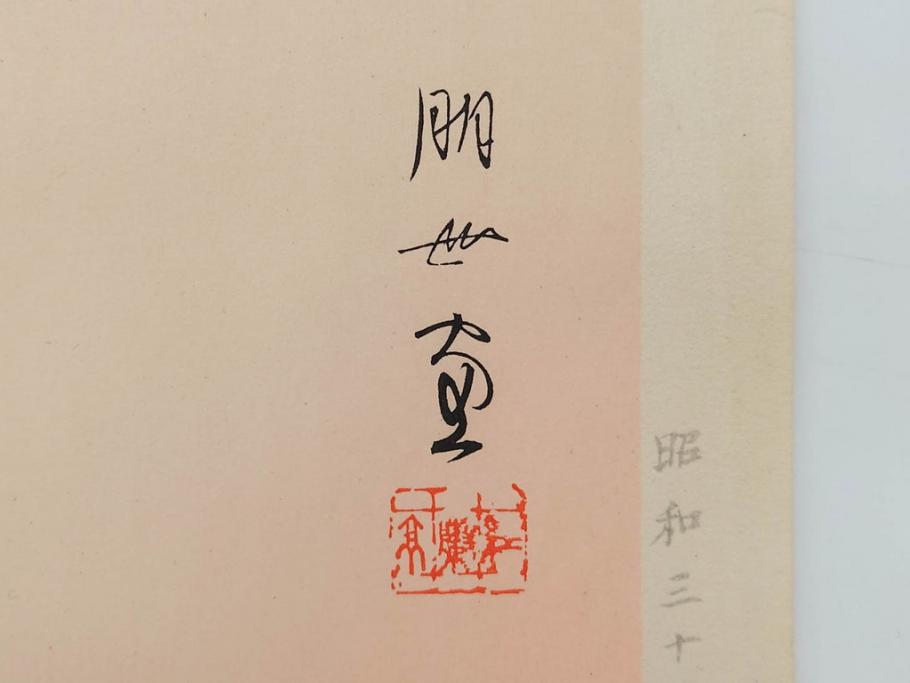 朋世画
昭和三十